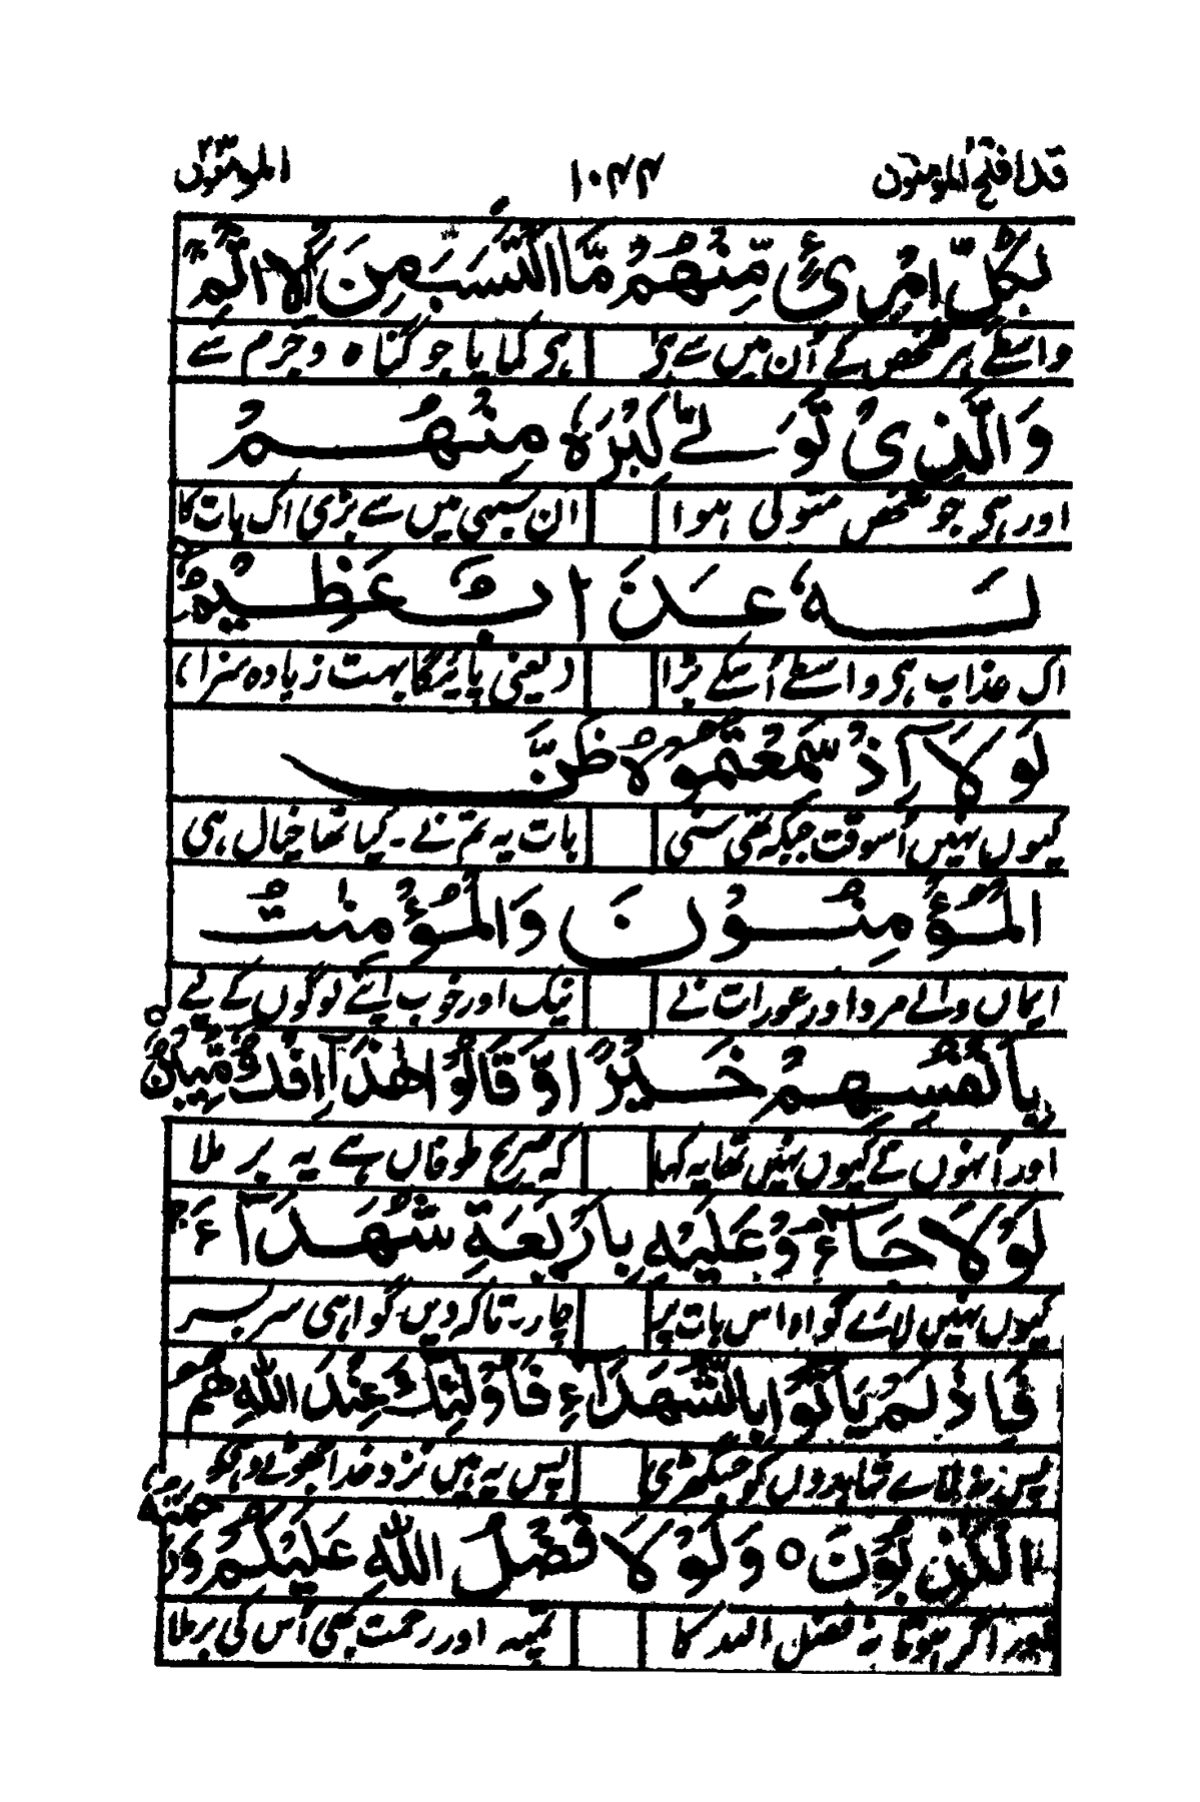 قد افلح المؤمنون ۱۰۴۴ المؤمنون ۲۳
لِكُلِّ امْرِئٍ مِّنْهُمْ مَّا اكْتَسَبَ مِنَ الْاِثْمِ ۚ
واسطے ہر شخص کے اُن میں سے ہی ہی کمایا جو گناہ و جرم سے
وَالَّذِیْ تَوَلّٰے كِبْرَهٗ مِنْهُمْ
اور ہی جو شخص متولی ہوا ان سبہی میں سے بڑی اک بات کا
لَهٗ عَذَابٌ عَظِیْمٌ
اک عذاب ہی واسطے اُسکے بڑا (یعنی پائیگا بہت زیادہ سزا)
لَوْلَاۤ اِذْ سَمِعْتُمُوْهُ ظَنَّ
کیوں نہیں اُسوقت جبکہ تھی سنی بات یہ تم نے ۔ کیا تھا خیال ہی
الْمُؤْمِنُوْنَ وَالْمُؤْمِنٰتُ
ایماں والے مرد اور عورات نے نیک اور خوب اپنے لوگوں کے لیے
بِاَنْفُسِهِمْ خَیْرًا وَّقَالُوْا هٰذَاۤ اِفْكٌ مُّبِیْنٌ ○
اور اُنہوں نے کیوں نہیں تھا یہ کہا کہ صریح طوفاں ہے یہ بر ملا
لَوْلَا جَآءُوْ عَلَیْهِ بِاَرْبَعَةِ شُهَدَآءَ ۚ
کیوں نہیں لائے گواہ اس بات پر چار ۔ تا کہ دیں گواہی سر بسر
فَاِذْ لَمْ یَاْتُوْا بِالشُّهَدَآءِ فَاُولٰٓئِكَ عِنْدَ اللّٰهِ هُمُ
پس نہ لائے شاہدوں کو جبگھڑی پس یہ ہیں نزد خدا جھوٹے وہی
الْكٰذِبُوْنَ ○ وَلَوْلَا فَضْلُ اللّٰهِ عَلَیْكُمْ وَرَحْمَتُهٗ
اور اگر ہوتا نہ فضل اللہ کا تمپہ اور رحمت بھی اُس کی برملا